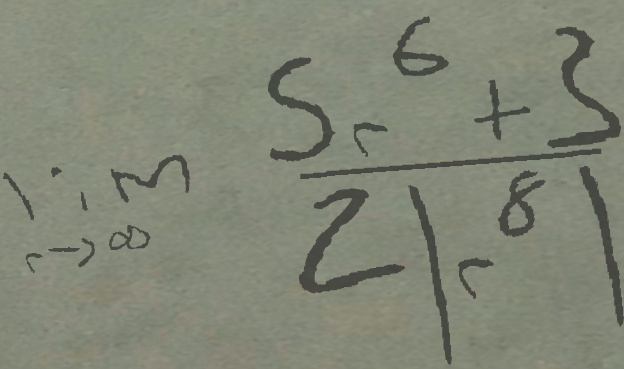 \lim_{r \to \infty} \frac{5r^6 + 3}{2|r^8|}